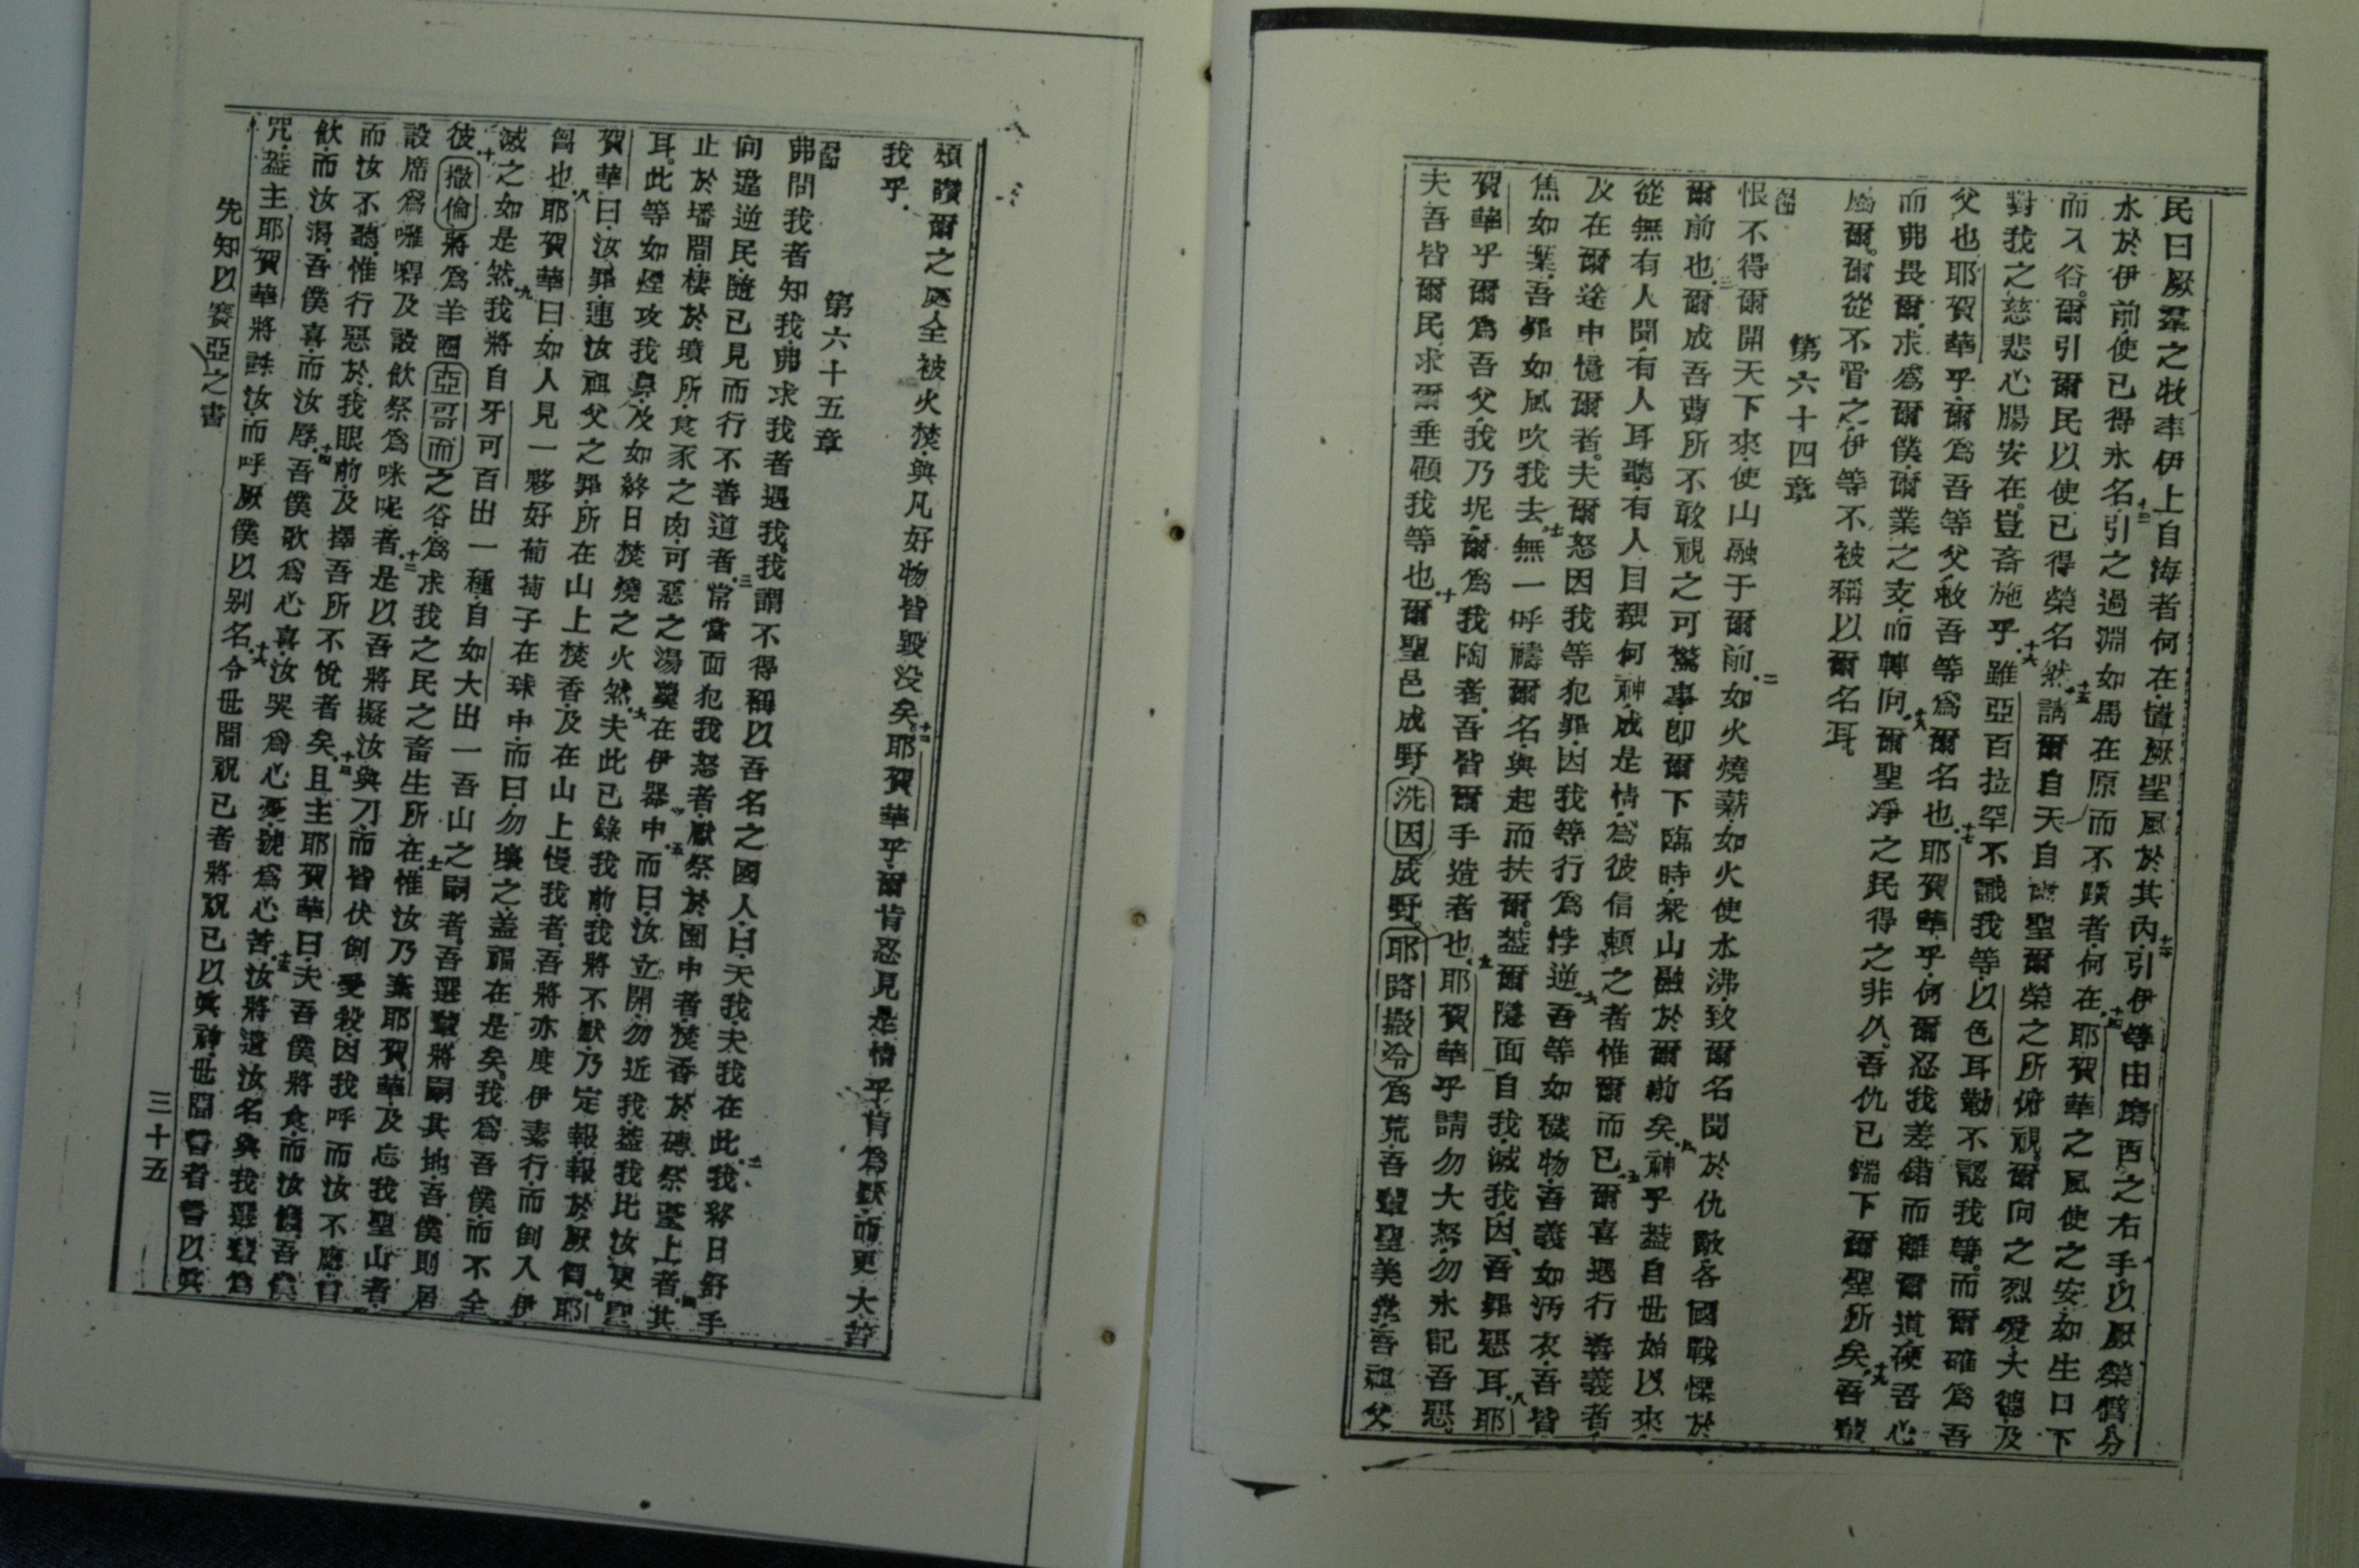 民曰厥羣之牧牽伊上自海者何在置厥聖風於其內十二引伊等由摩西之右手以厥榮臂分
水於伊前使已得永名十三引之過淵如馬在原而不躓者何在十四耶賀華之風使之安如生口下
而入谷爾引爾民以使已得榮名然十五請爾自天自爾聖爾榮之所俯視爾向之烈愛大德及
對我之慈悲心腸安在豈吝施乎十六雖亞百拉罕不識我等以色耳勒不認我等而爾確為吾
父也耶賀華乎爾為吾等父救吾等為爾名也十七耶賀華乎何爾忍我差錯而離爾道硬吾心
而弗畏爾求為爾僕爾業之支而轉向十八爾聖淨之民得之非久吾仇已踹下爾聖所矣十九吾輩
屬爾爾從不管之伊等不被稱以爾名耳
第六十四章
恨不得爾開天下來使山融于爾前二如火燒薪如火使水沸致爾名聞於仇敵各國戰慄於
爾前也三爾成吾曹所不敢視之可驚事即爾下臨時衆山融於爾前矣四神乎蓋自世始以來
從無有人聞有人耳聽有人目覩何神成是情為彼信賴之者惟爾而已五爾喜遇行善義者
及在爾途中憶爾者夫爾怒因我等犯罪因我等行為悖逆六吾等如穢物吾義如汚衣吾皆
焦如葉吾罪如風吹我去七無一呼禱爾名與起而扶爾蓋爾隱面自我滅我因吾罪惡耳八耶
賀華乎爾為吾父我乃坭爾為我陶者吾皆爾手造者也九耶賀華乎請勿大怒勿永記吾惡
夫吾皆爾民求爾垂顧我等也十爾聖邑成野洗因成野耶路撒冷為荒十一吾輩聖美堂吾祖父
頌讚爾之處全被火焚與凡好物皆毀没矣十二耶賀華乎爾肯忍見是情乎肯為默而更大苦
我乎
第六十五章
弗問我者知我弗求我者遇我我謂不得稱以吾名之國人曰夫我夫我在此二我終日舒手
向違逆民隨己見而行不善道者三常當面犯我怒者獻祭於園中者焚香於磚祭臺上者四其
止於墦間棲於墳所食豕之肉可惡之湯羹在伊器中五而曰汝立開勿近我蓋我比汝更聖
耳此等如煙攻我鼻及如終日焚燒之火然六夫此已錄我前我將不默乃定報報於厥胷七耶
賀華曰汝罪連汝祖父之罪所在山上焚香及在山上慢我者吾將亦度伊素行而倒入伊
胷也八耶賀華曰如人見一夥好葡萄子在球中而曰勿壞之蓋福在是矣我為吾僕而不全
滅之如是然九我將自牙可百出一種自如大出一吾山之嗣者吾選輩將嗣其地吾僕則居
彼十撒倫將為羊圈亞哥而之谷為求我之民之畜生所在十一惟汝乃棄耶賀華及忘我聖山者
設席為囉嘚及設飲祭為咪呢者十二是以吾將擬汝與刀而皆伏倒受殺因我呼而汝不應言
而汝不聽惟行惡於我眼前及擇吾所不悅者矣十三且主耶賀華曰夫吾僕將食而汝饑吾僕
飲而汝渴吾僕喜而汝辱十四吾僕歌為心喜汝哭為心憂號為心苦十五汝將遺汝名與我選輩為
咒蓋主耶賀華將誅汝而呼厥僕以别名十六令世間祝己者將祝己以真神世間誓者誓以真
先知以賽亞之書
三十五